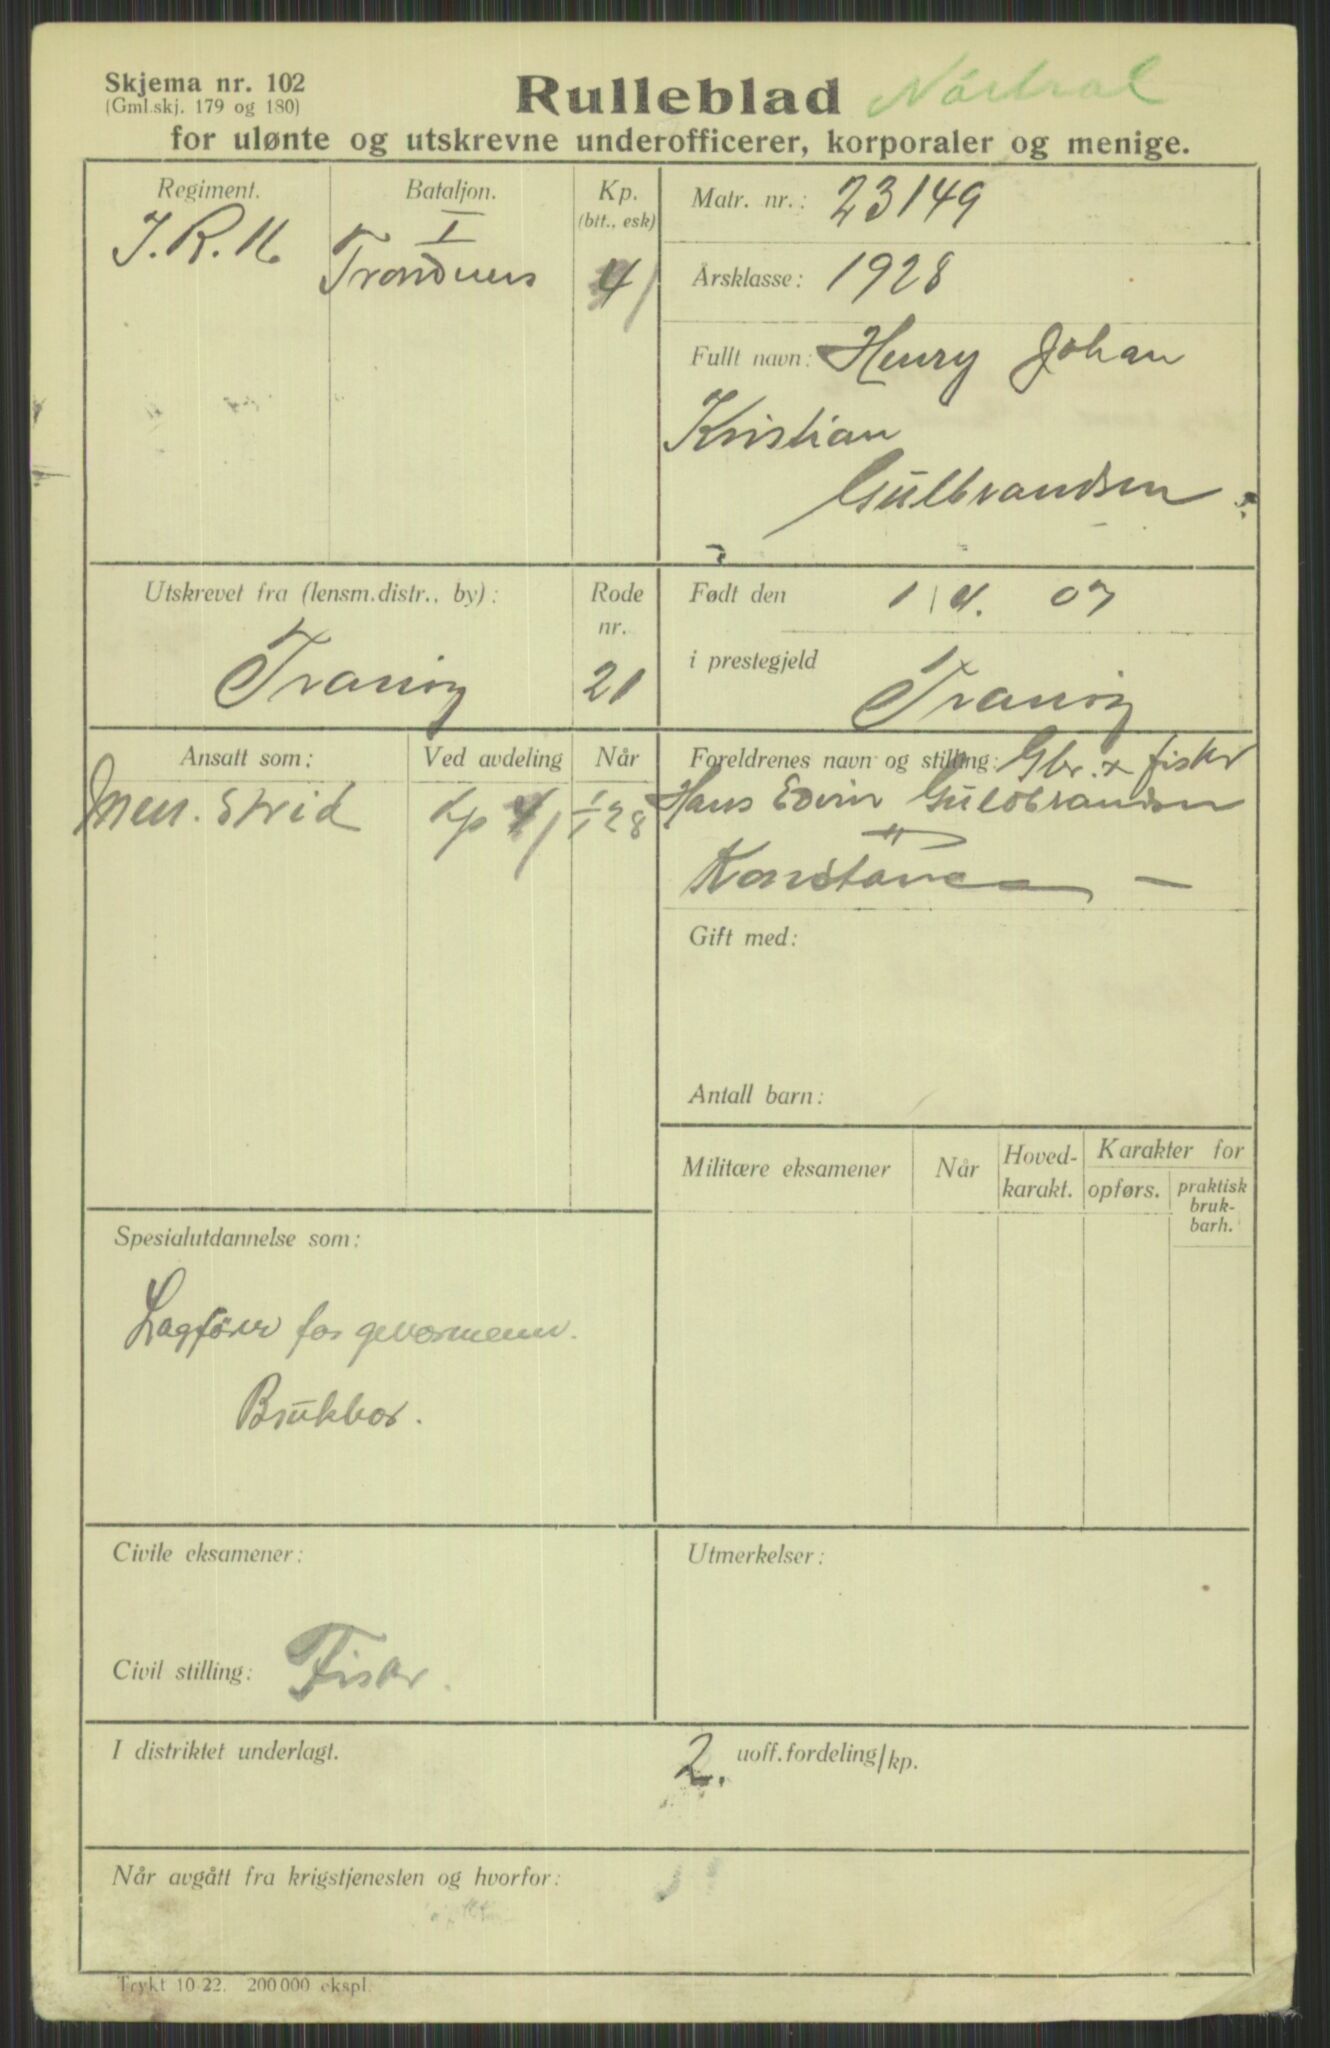 Skjema nr. 102
(Gml.skj. 179 og 180)
Rulleblad
for ulønte og utskrevne underofficerer, korporaler og menige.
Regiment.
I.R.16
Bataljon.
I
Trondenes
Kp.
(btt., esk)
4
Matr. nr.: 23149
Årsklasse: 1928
Fullt navn: Henry Johan
Kristian
Gulbrandsen
Utskrevet fra (lensm.distr., by):
Tranöy
Rode
nr.
21
Født den 1/4. 07
i prestegjeld
Tranöy
Ansatt som:
Men. Strid
Ved avdeling
Kp 4/
Når
1/1 28
Foreldrenes navn og stilling: Gbr. + fisker
Hans Edvin Guldbrandsen
Konstance —
Gift med:
Antall barn:
Militære eksamener
Når
Hoved-
karakt.
Karakter for
opførs.
praktisk
bruk-
barh.
Spesialutdannelse som:
Lagförer for geværmenn.
Brukbar.
Civile eksamener:
Civil stilling: Fisker.
Utmerkelser:
I distriktet underlagt.
2. uoff. fordeling/kp.
Når avgått fra krigstjenesten og hvorfor:
Trykt 10-22. 200 000 ekspl.